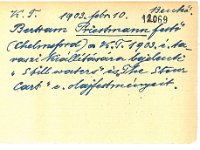 K. T. 1903. febr. 10. Beniczk
12069
Bertram Priestmann festő
(Chelmsford) a K. T. 1903. i. ta-
vaszi kiállítására bejelenti
"Still waters" és "The Stour
Cart" c. olajfestményeit.